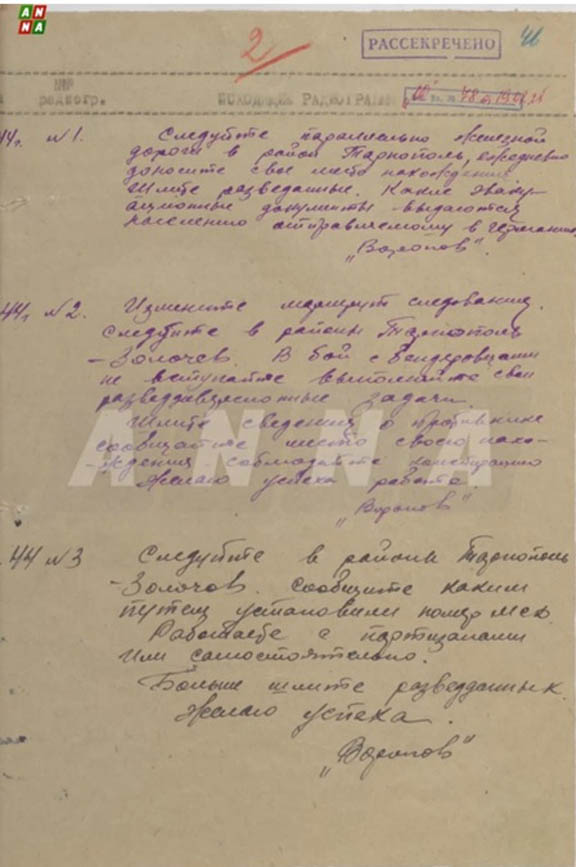 AN
NA
2
РАССЕКРЕЧЕНО
радиогр.
ИСХОДЯЩИЕ РАДИОГРАММЫ
44г. №1. Следуйте параллельно железной
дороги в район Тарнополь, ежедневно
доносите свое место нахождения
Шлите разведданые. Какие эваку-
ационные документы выдаются
населению отправляемому в Германию
"Воропов".
44г. №2. Измените маршрут следования.
Следуйте в районы Тарнополь
-Золочев. В бой с бендеровцами
не вступайте выполняйте свои
задачи.
Шлите сведения о противнике
сообщайте место своего нахо-
-ждения - соблюдайте конспирацию
Желаю успеха работе.
"Воропов"
.44 №3 Следуйте в районы Тарнополь
-Золочов. Сообщите каким
путем установили номер мсд.
Работаете с партизанами
или самостоятельно.
Больше шлите разведданных.
Желаю успеха.
"Воропов"
ANNA